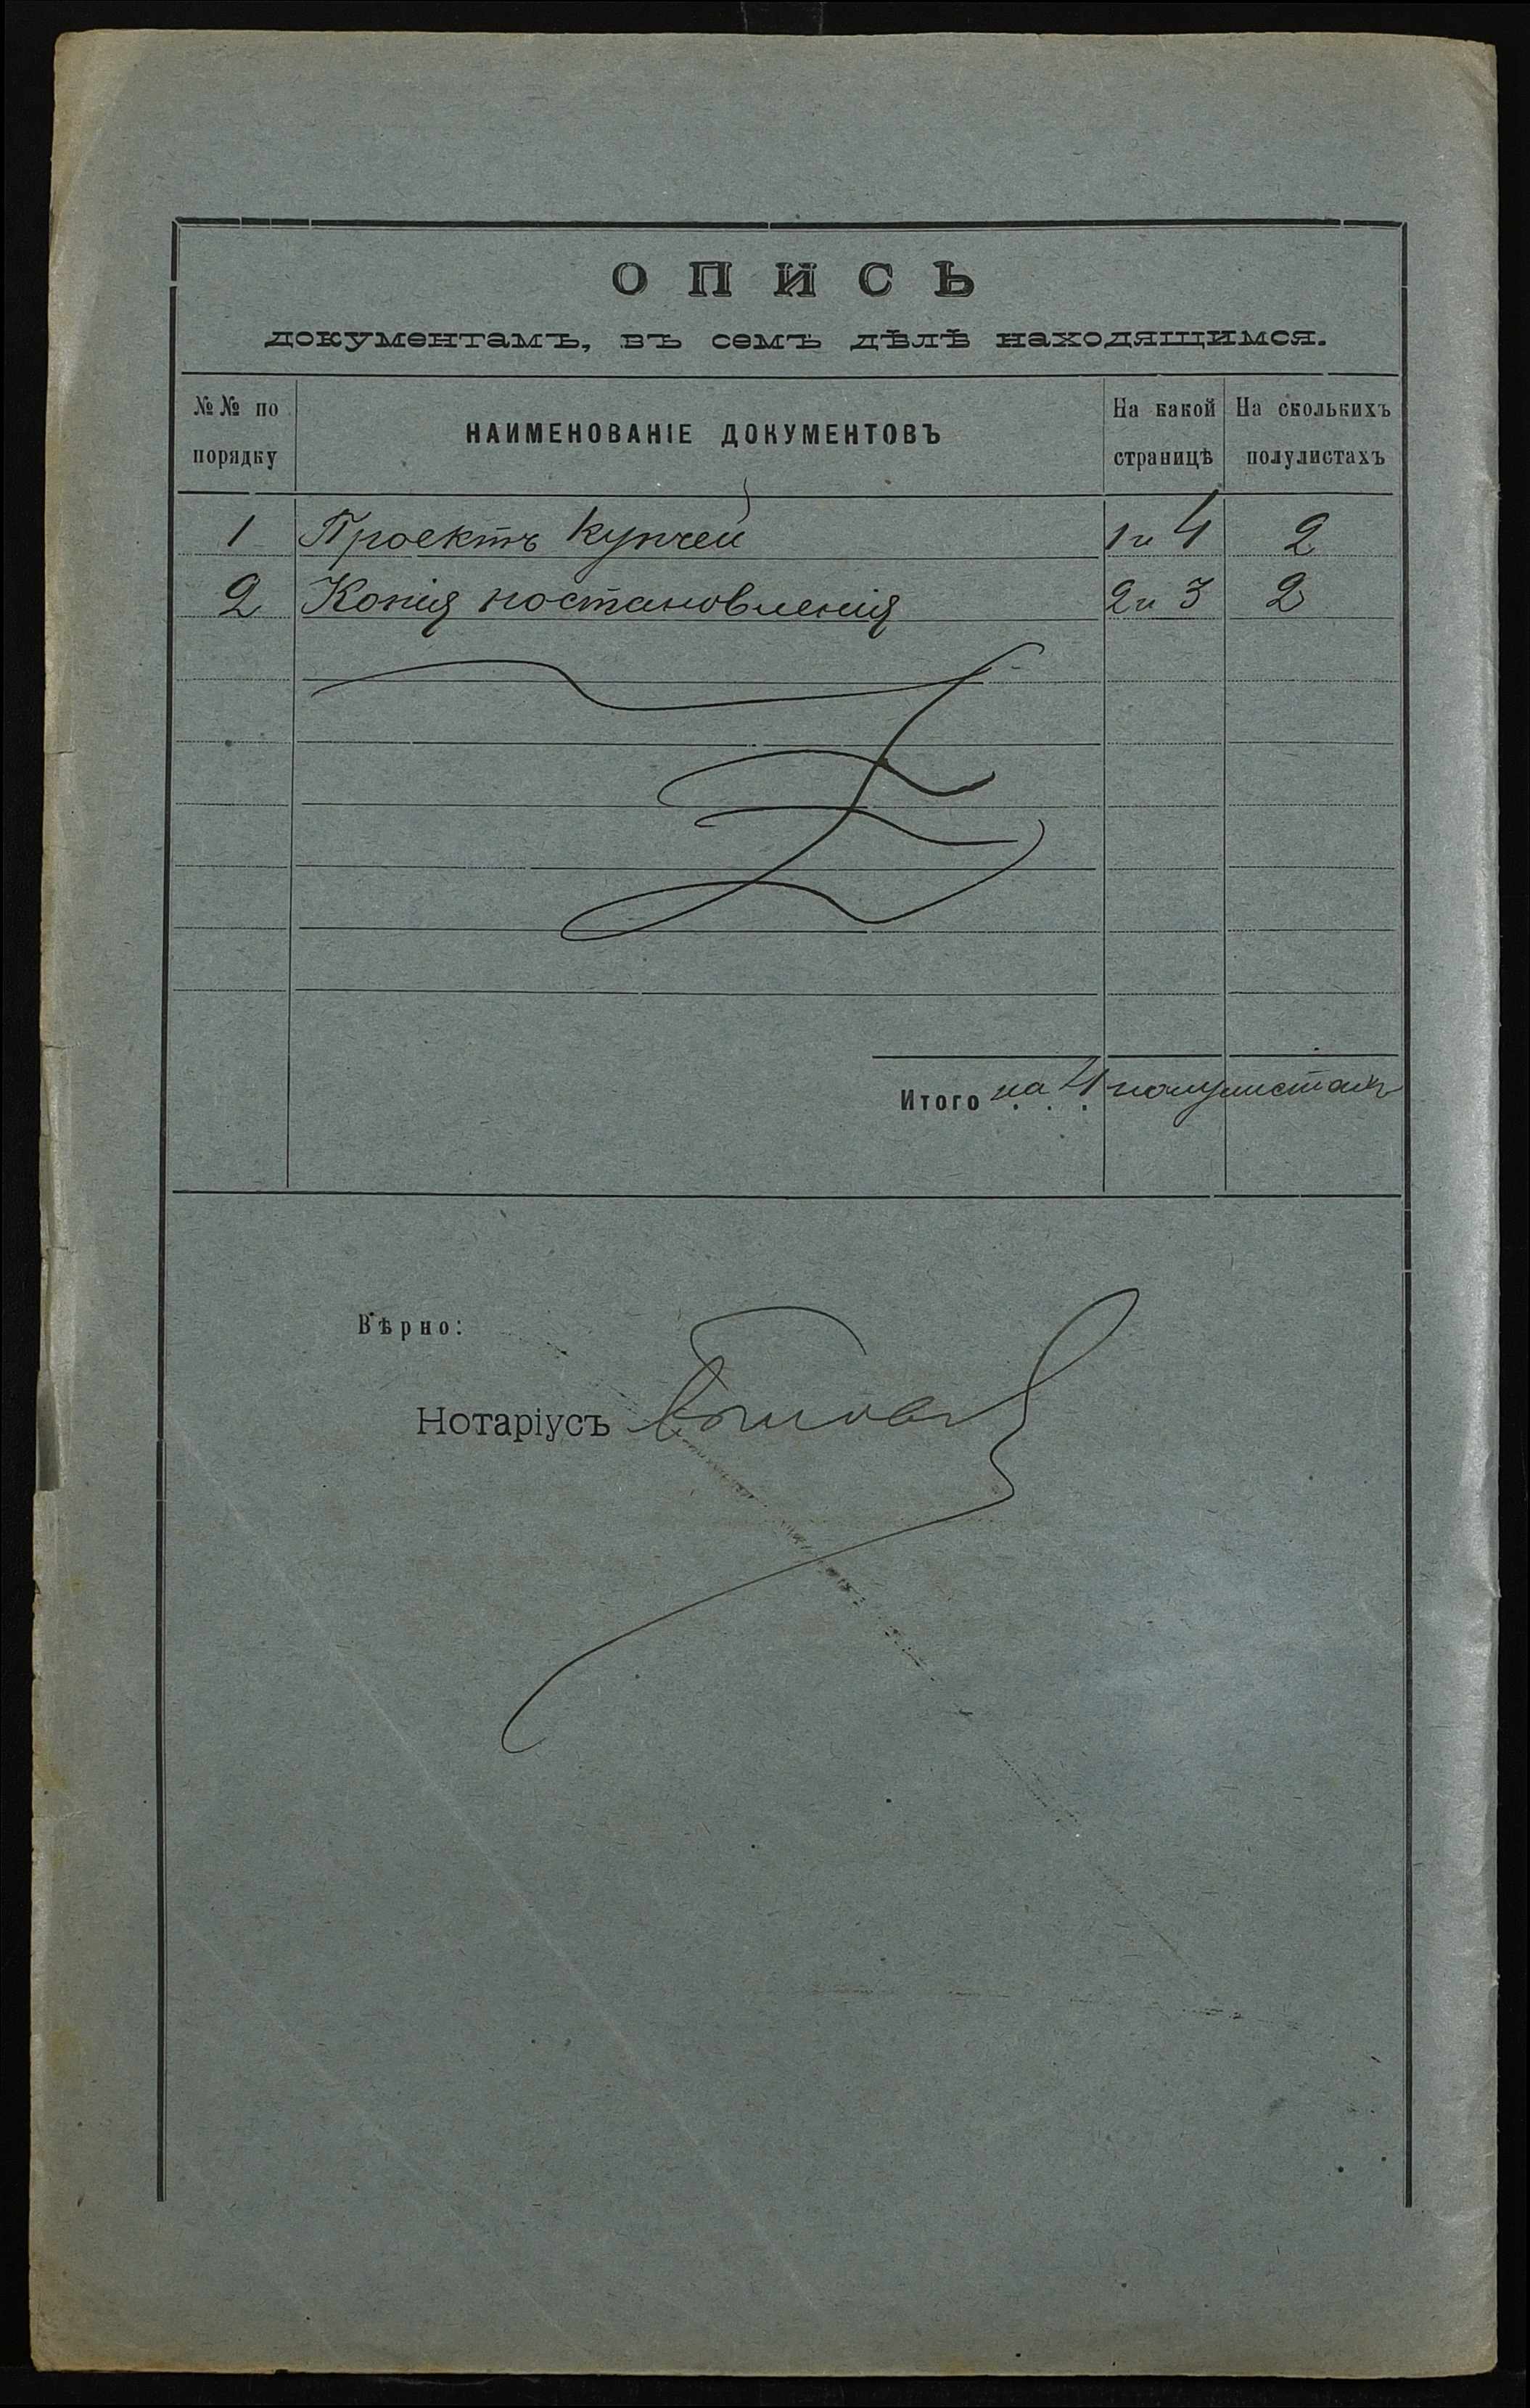 ОПИСЬ
документамъ, въ семъ дѣлѣ находящимся.
№№ по порядку
НАИМЕНОВАНІЕ ДОКУМЕНТОВЪ
На какой страницѣ
На сколькихъ полулистахъ
1 Проектъ купчей 1 и 4 2
2 Копія постановленія 2 и 3 2
Итого на 4 полулистахъ
Вѣрно:
Нотаріусъ